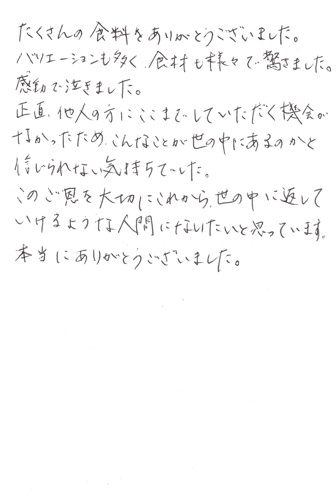 たくさんの食料をありがとうございました。
バリエーションも多く、食材も様々で、驚きました。
感動で泣きました。
正直、他人の方にここまでしていただく機会が
なかったため、こんなことが世の中にあるのかと
信じられない気持ちでした。
このご恩を大切にこれから、世の中に返して
いけるような人間になりたいと思っています。
本当にありがとうございました。